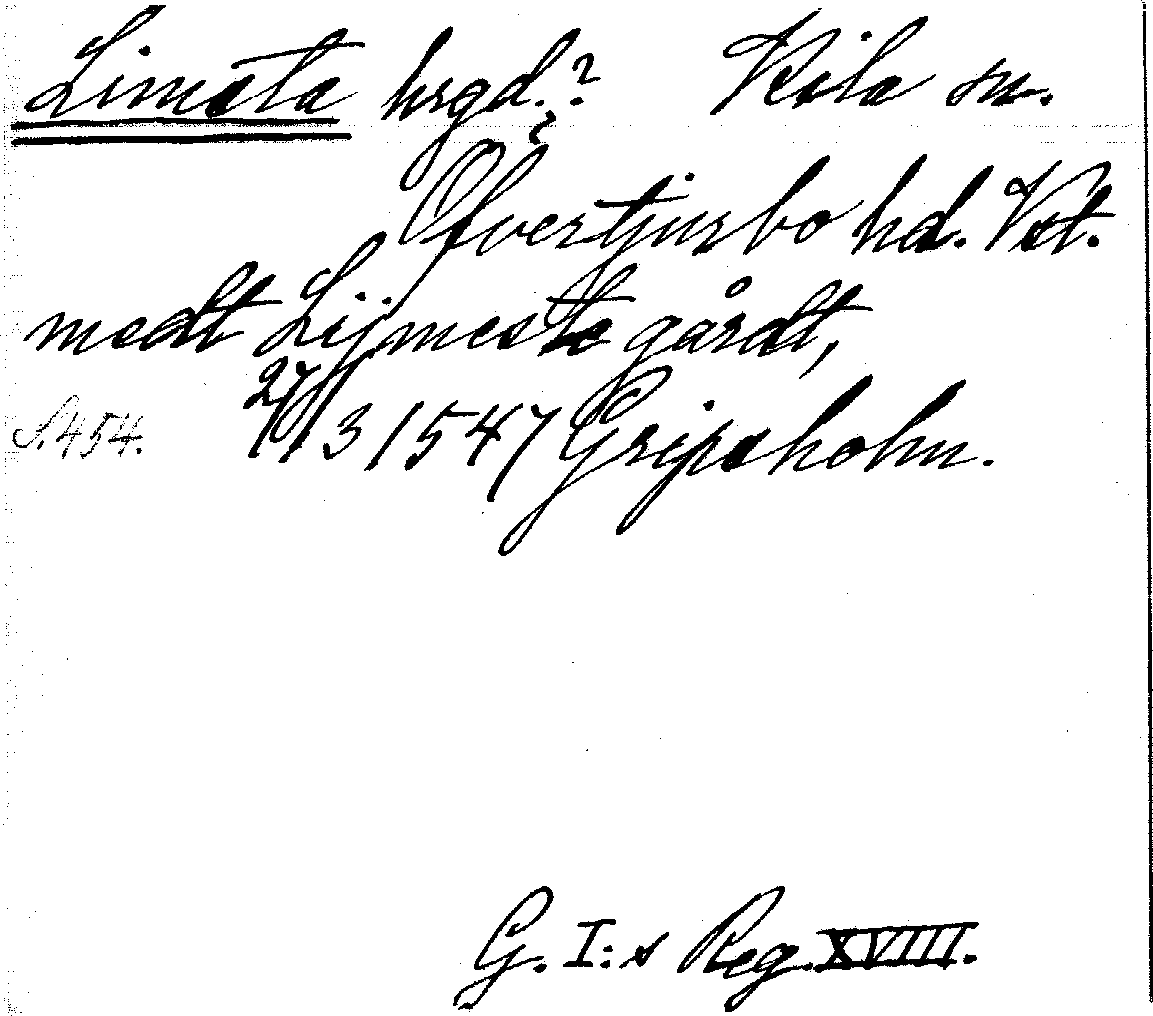 Limsta hrgd.? Kila sn.
Øfvertjurbo hd. Vstm.
medt Lijmesta gårdt,
S. 454. 27/3 1547 Gripsholm.
G. I:s Reg. XVIII.